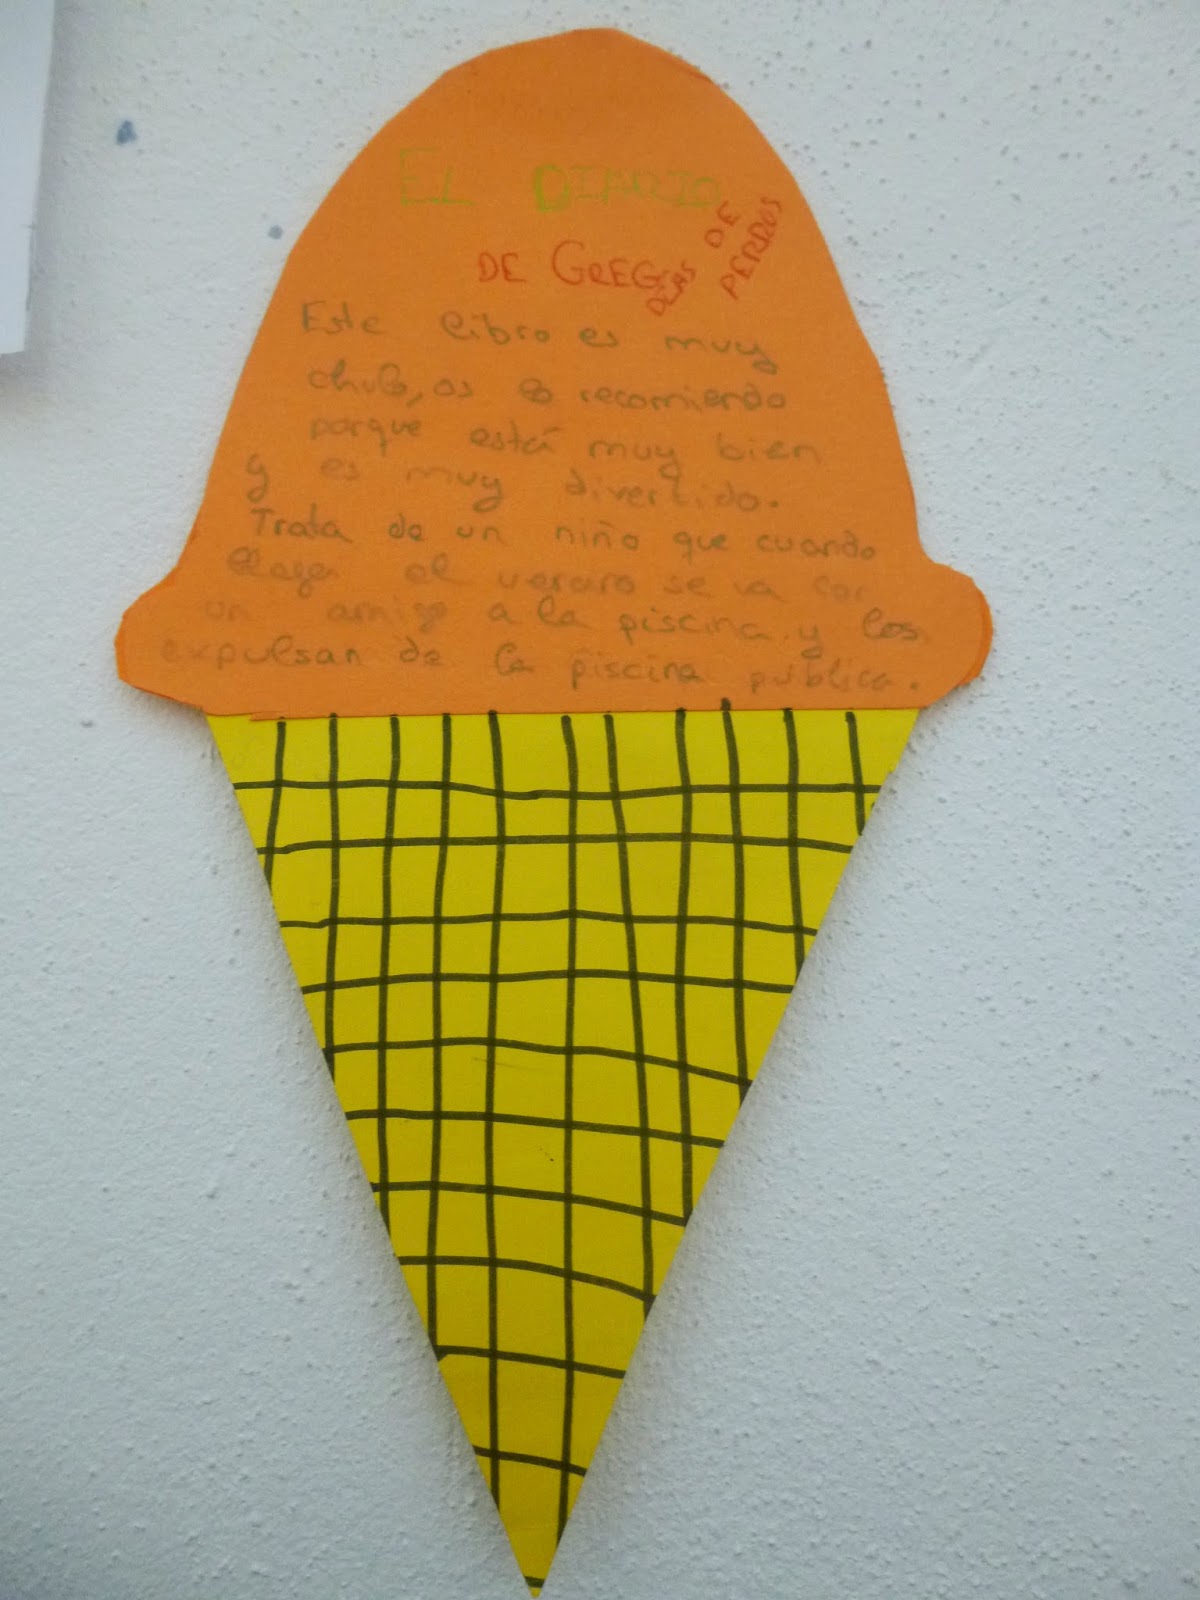 EL DIARIO
DE GREG
DÍAS DE PERROS
Este libro es muy
chulo, os lo recomiendo
porque está muy bien
y es muy divertido.
Trata de un niño que cuando
llega el verano se va con
un amigo a la piscina y los
expulsan de la piscina publica.